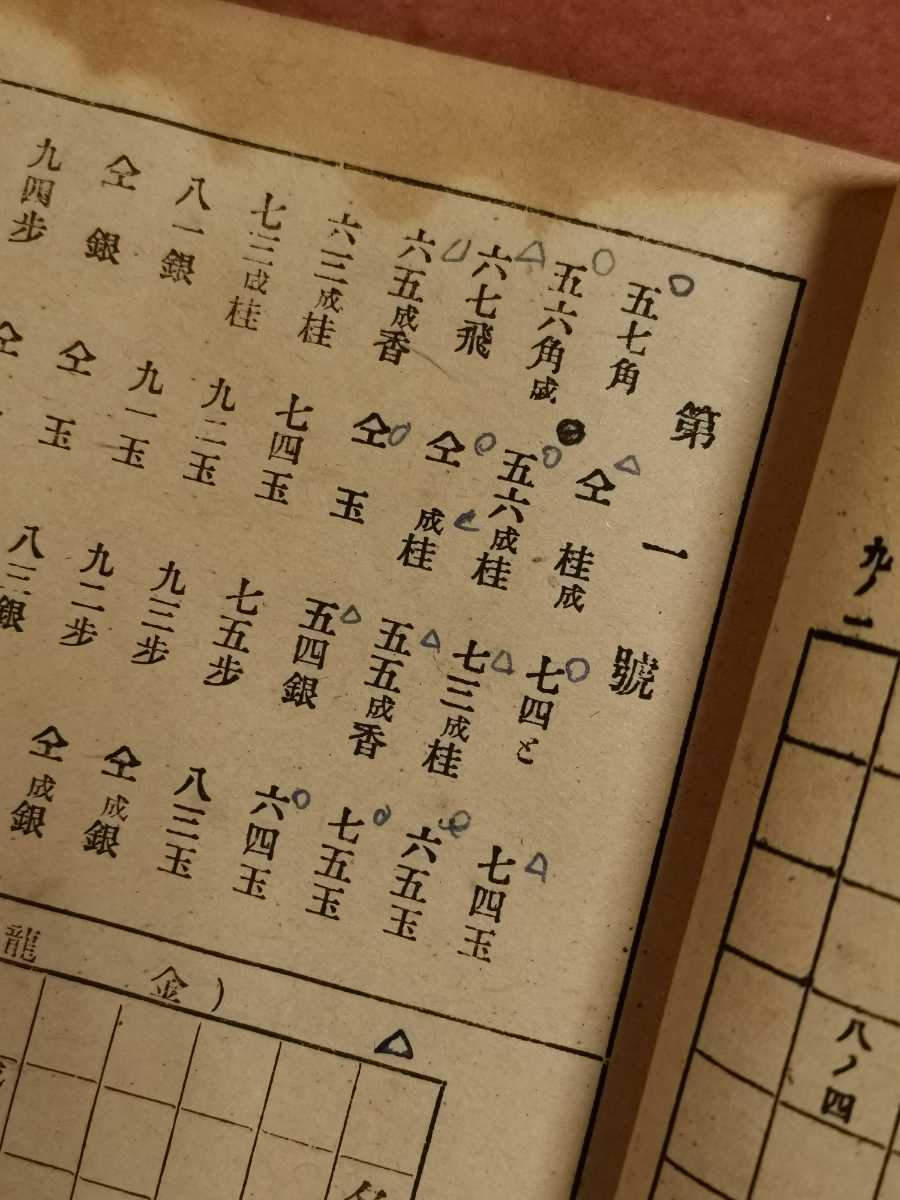 九ノ一
八ノ四
第一號
五七角 仝桂成 七四と 七四玉
五六角成 五六成桂 七三成桂 六五玉
六七飛 仝成桂 五五成香 七五玉
六五成香 仝玉 五四銀 六四玉
六三成桂 七四玉 七五步 八三玉
七三成桂 九二玉 九三步 仝成銀
八一銀 九一玉 九二步 仝成銀
仝銀 仝玉 八三銀
九四步 仝
龍金)